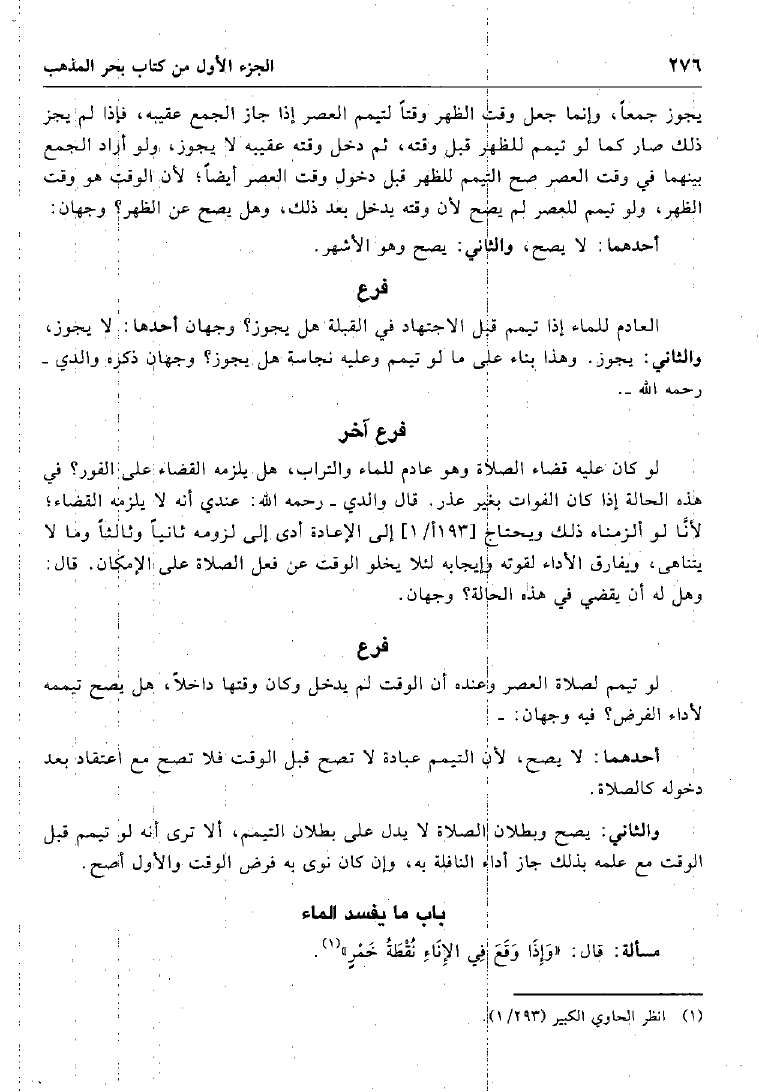 ٢٧٦ الجزء الأول من كتاب بحر المذهب
يجوز جمعاً، وإنما جعل وقت الظهر وقتاً لتيمم العصر إذا جاز الجمع عقيبه، فإذا لم يجز
ذلك صار كما لو تيمم للظهر قبل وقته، ثم دخل وقته عقيبه لا يجوز، ولو أراد الجمع
بينهما في وقت العصر صح التيمم للظهر قبل دخول وقت العصر أيضاً؛ لأن الوقت هو وقت
الظهر، ولو تيمم للعصر لم يصح لأن وقته يدخل بعد ذلك، وهل يصح عن الظهر؟ وجهان:
أحدهما: لا يصح، والثاني: يصح وهو الأشهر.
فرع
العادم للماء إذا تيمم قبل الاجتهاد في القبلة هل يجوز؟ وجهان أحدها: لا يجوز،
والثاني: يجوز. وهذا بناء على ما لو تيمم وعليه نجاسة هل يجوز؟ وجهان ذكره والدي ـ
رحمه الله ـ.
فرع آخر
لو كان عليه قضاء الصلاة وهو عادم للماء والتراب، هل يلزمه القضاء على الفور؟ في
هذه الحالة إذا كان الفوات بغير عذر. قال والدي ـ رحمه الله: عندي أنه لا يلزمه القضاء؛
لأنَّا لو ألزمناه ذلك ويحتاج [١٩٣أ/ ١] إلى الإعادة أدى إلى لزومه ثانياً وثالثاً وما لا
يتناهى، ويفارق الأداء لقوته وإيجابه لئلا يخلو الوقت عن فعل الصلاة على الإمكان. قال:
وهل له أن يقضي في هذه الحالة؟ وجهان.
فرع
لو تيمم لصلاة العصر وعنده أن الوقت لم يدخل وكان وقتها داخلاً، هل يصح تيممه
لأداء الفرض؟ فيه وجهان: ـ
أحدهما: لا يصح، لأن التيمم عبادة لا تصح قبل الوقت فلا تصح مع اعتقاد بعد
دخوله كالصلاة.
والثاني: يصح وبطلان الصلاة لا يدل على بطلان التيمم، ألا ترى أنه لو تيمم قبل
الوقت مع علمه بذلك جاز أداء النافلة به، وإن كان نوى به فرض الوقت والأول أصح.
باب ما يفسد الماء
مسألة: قال: «وَإِذَا وَقَعَ فِي الإِنَاءِ نُقْطَةُ خَمْرٍ»(١).
(١) انظر الحاوي الكبير (١/٢٩٣).